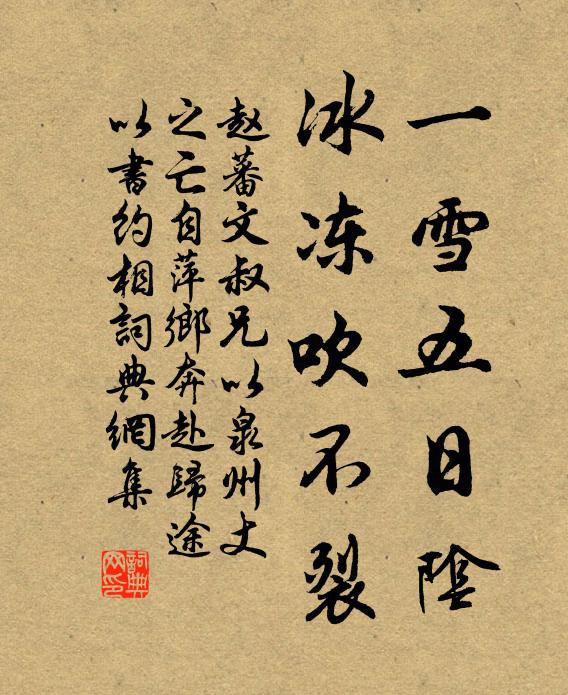 一雪五日陰
冰冻吹不裂
赵蕃文叔兄以泉州丈
之亡自萍鄉奔赴歸途
以書約相詞典網集
詞典
网印